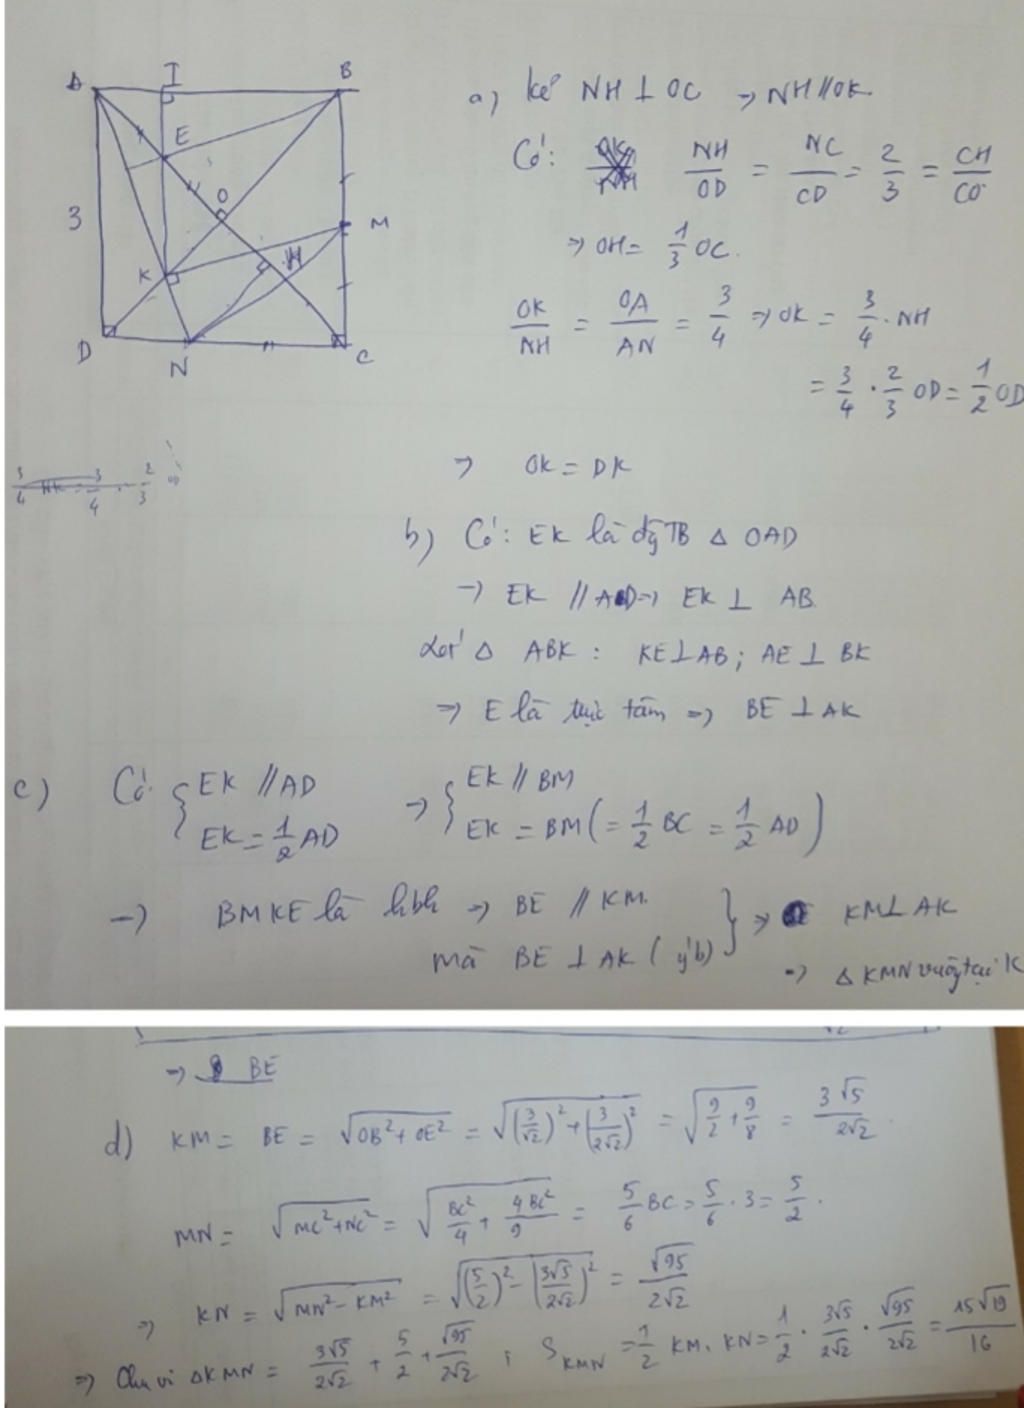 A I B
E
3 O M
K H
D N C
a) kẻ NH ⊥ OC → NH // OK
Có: NH/OD = NC/CD = 2/3 = CH/CO
⇒ OH = 1/3 OC.
OK/NH = OA/AN = 3/4 ⇒ OK = 3/4 . NH
= 3/4 . 2/3 OD = 1/2 OD
⇒ OK = DK
b) Có: EK là đg TB Δ OAD
→ EK // AD → EK ⊥ AB
Xét Δ ABK: KE ⊥ AB; AE ⊥ BK
⇒ E là trực tâm ⇒ BE ⊥ AK
c) Có { EK // AD → { EK // BM
EK = 1/2 AD EK = BM (= 1/2 BC = 1/2 AD)
→ BMKE là hbh → BE // KM.
mà BE ⊥ AK (ý b) } ⇒ KM ⊥ AK
⇒ Δ KMN vuông tại K
→ BE
d) KM = BE = √(OB² + OE²) = √((3/√2)² + (3/2√2)²) = √(9/2 + 9/8) = 3√5/2√2.
MN = √(MC² + NC²) = √(BC²/4 + 4BC²/9) = 5/6 BC = 5/6 . 3 = 5/2.
⇒ KN = √(MN² - KM²) = √((5/2)² - (3√5/2√2)²) = √95/2√2
⇒ Chu vi ΔKMN = 3√5/2√2 + 5/2 + √95/2√2 ; S_KMN = 1/2 KM . KN = 1/2 . 3√5/2√2 . √95/2√2 = 15√19/16